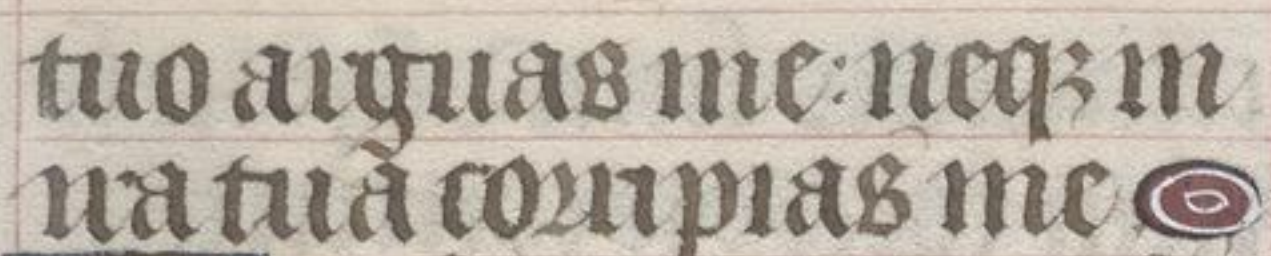 tuo arguas me: neqꝫ in
ira tuā corripias me